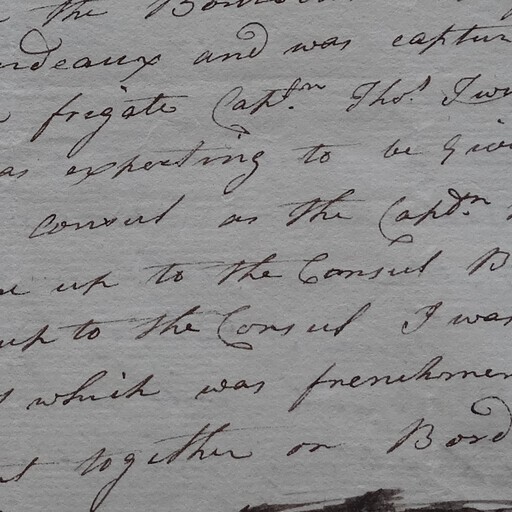 the
rdeaux and was captur
frigate Captn Thos I
as expecting to be Givi
consul as the Captn
up to the Consul B
up to the Consul I was
which was frenchmen
together on Bord